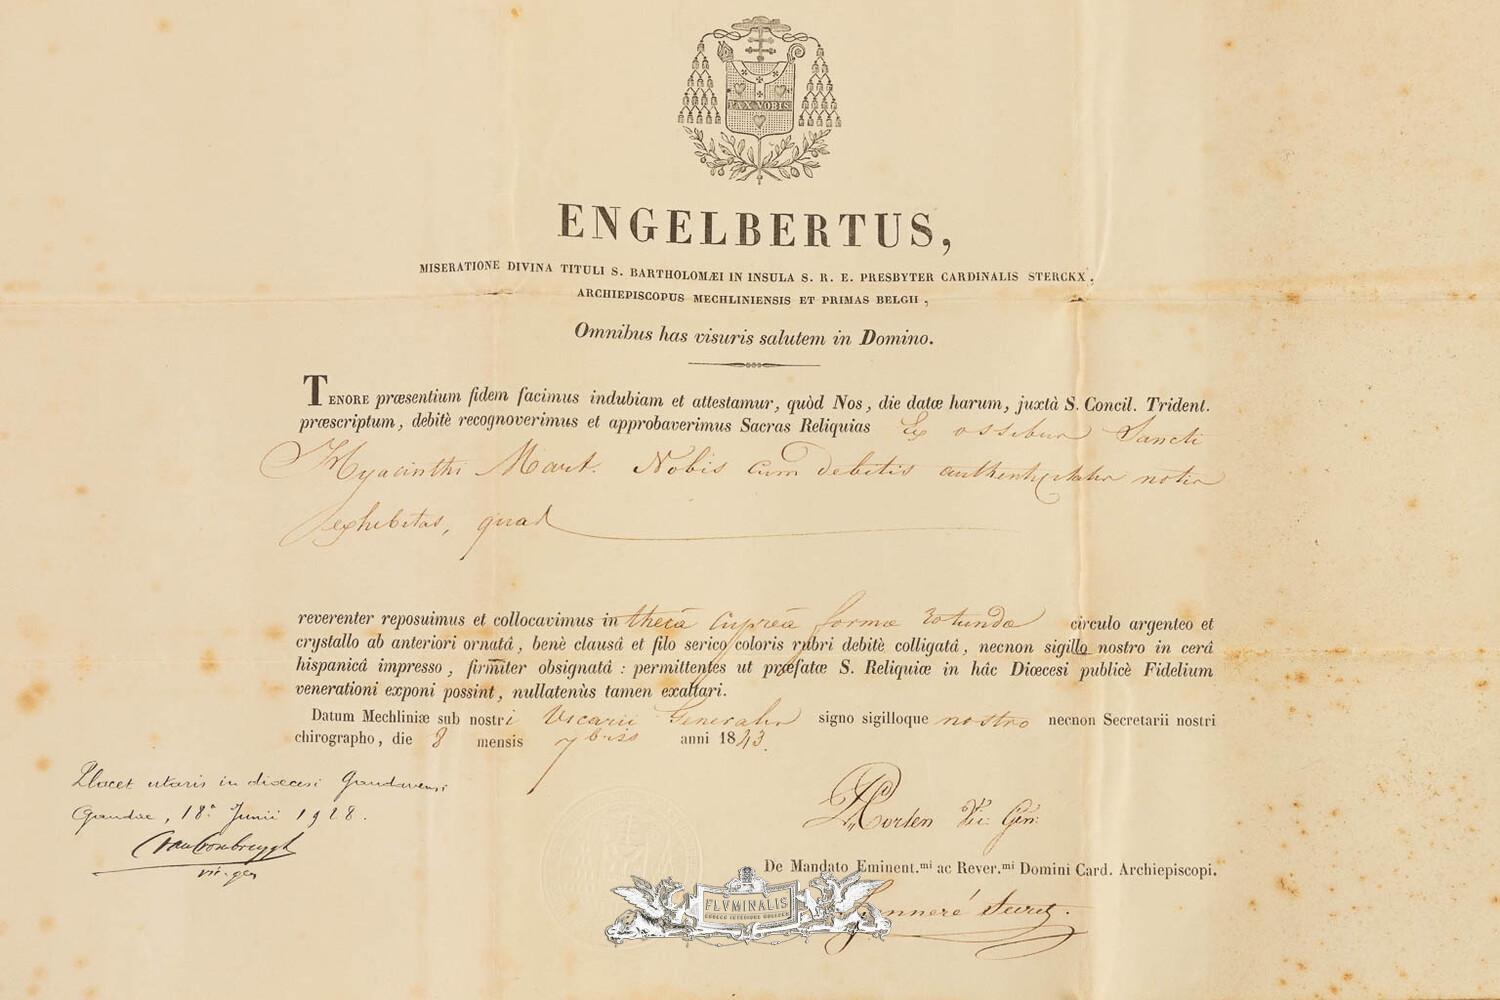 PAX VOBIS
ENGELBERTUS,
MISERATIONE DIVINA TITULI S. BARTHOLOMÆI IN INSULA S. R. E. PRESBYTER CARDINALIS STERCKX,
ARCHIEPISCOPUS MECHLINIENSIS ET PRIMAS BELGII,
Omnibus has visuris salutem in Domino.
TENORE præsentium fidem facimus indubiam et attestamur, quòd Nos, die datæ harum, juxtà S. Concil. Trident.
præscriptum, debitè recognoverimus et approbaverimus Sacras Reliquias Ex ossibus Sancti
Hyacinthi Mart. Nobis cum debitis authenticitatis notis
exhibitas, quas
reverenter reposuimus et collocavimus in thecâ cupreâ formæ rotundæ circulo argenteo et
crystallo ab anteriori ornatâ, benè clausâ et filo serico coloris rubri debitè colligatâ, necnon sigillo nostro in cerâ
hispanicâ impresso, firmiter obsignatâ : permittentes ut præfatæ S. Reliquiæ in hâc Diœcesi publicè Fidelium
venerationi exponi possint, nullatenùs tamen exaltari.
Datum Mechliniæ sub nostri Vicarii Generalis signo sigilloque nostro necnon Secretarii nostri
chirographo, die 8 mensis 7bris anni 1843.
Placet utaris in diœcesi Gandavensi
Gandae, 18a Junii 1928.
vic. gen
Corten Vic. Gén.
De Mandato Eminent.mi ac Rever.mi Domini Card. Archiepiscopi.
FLVMINALIS